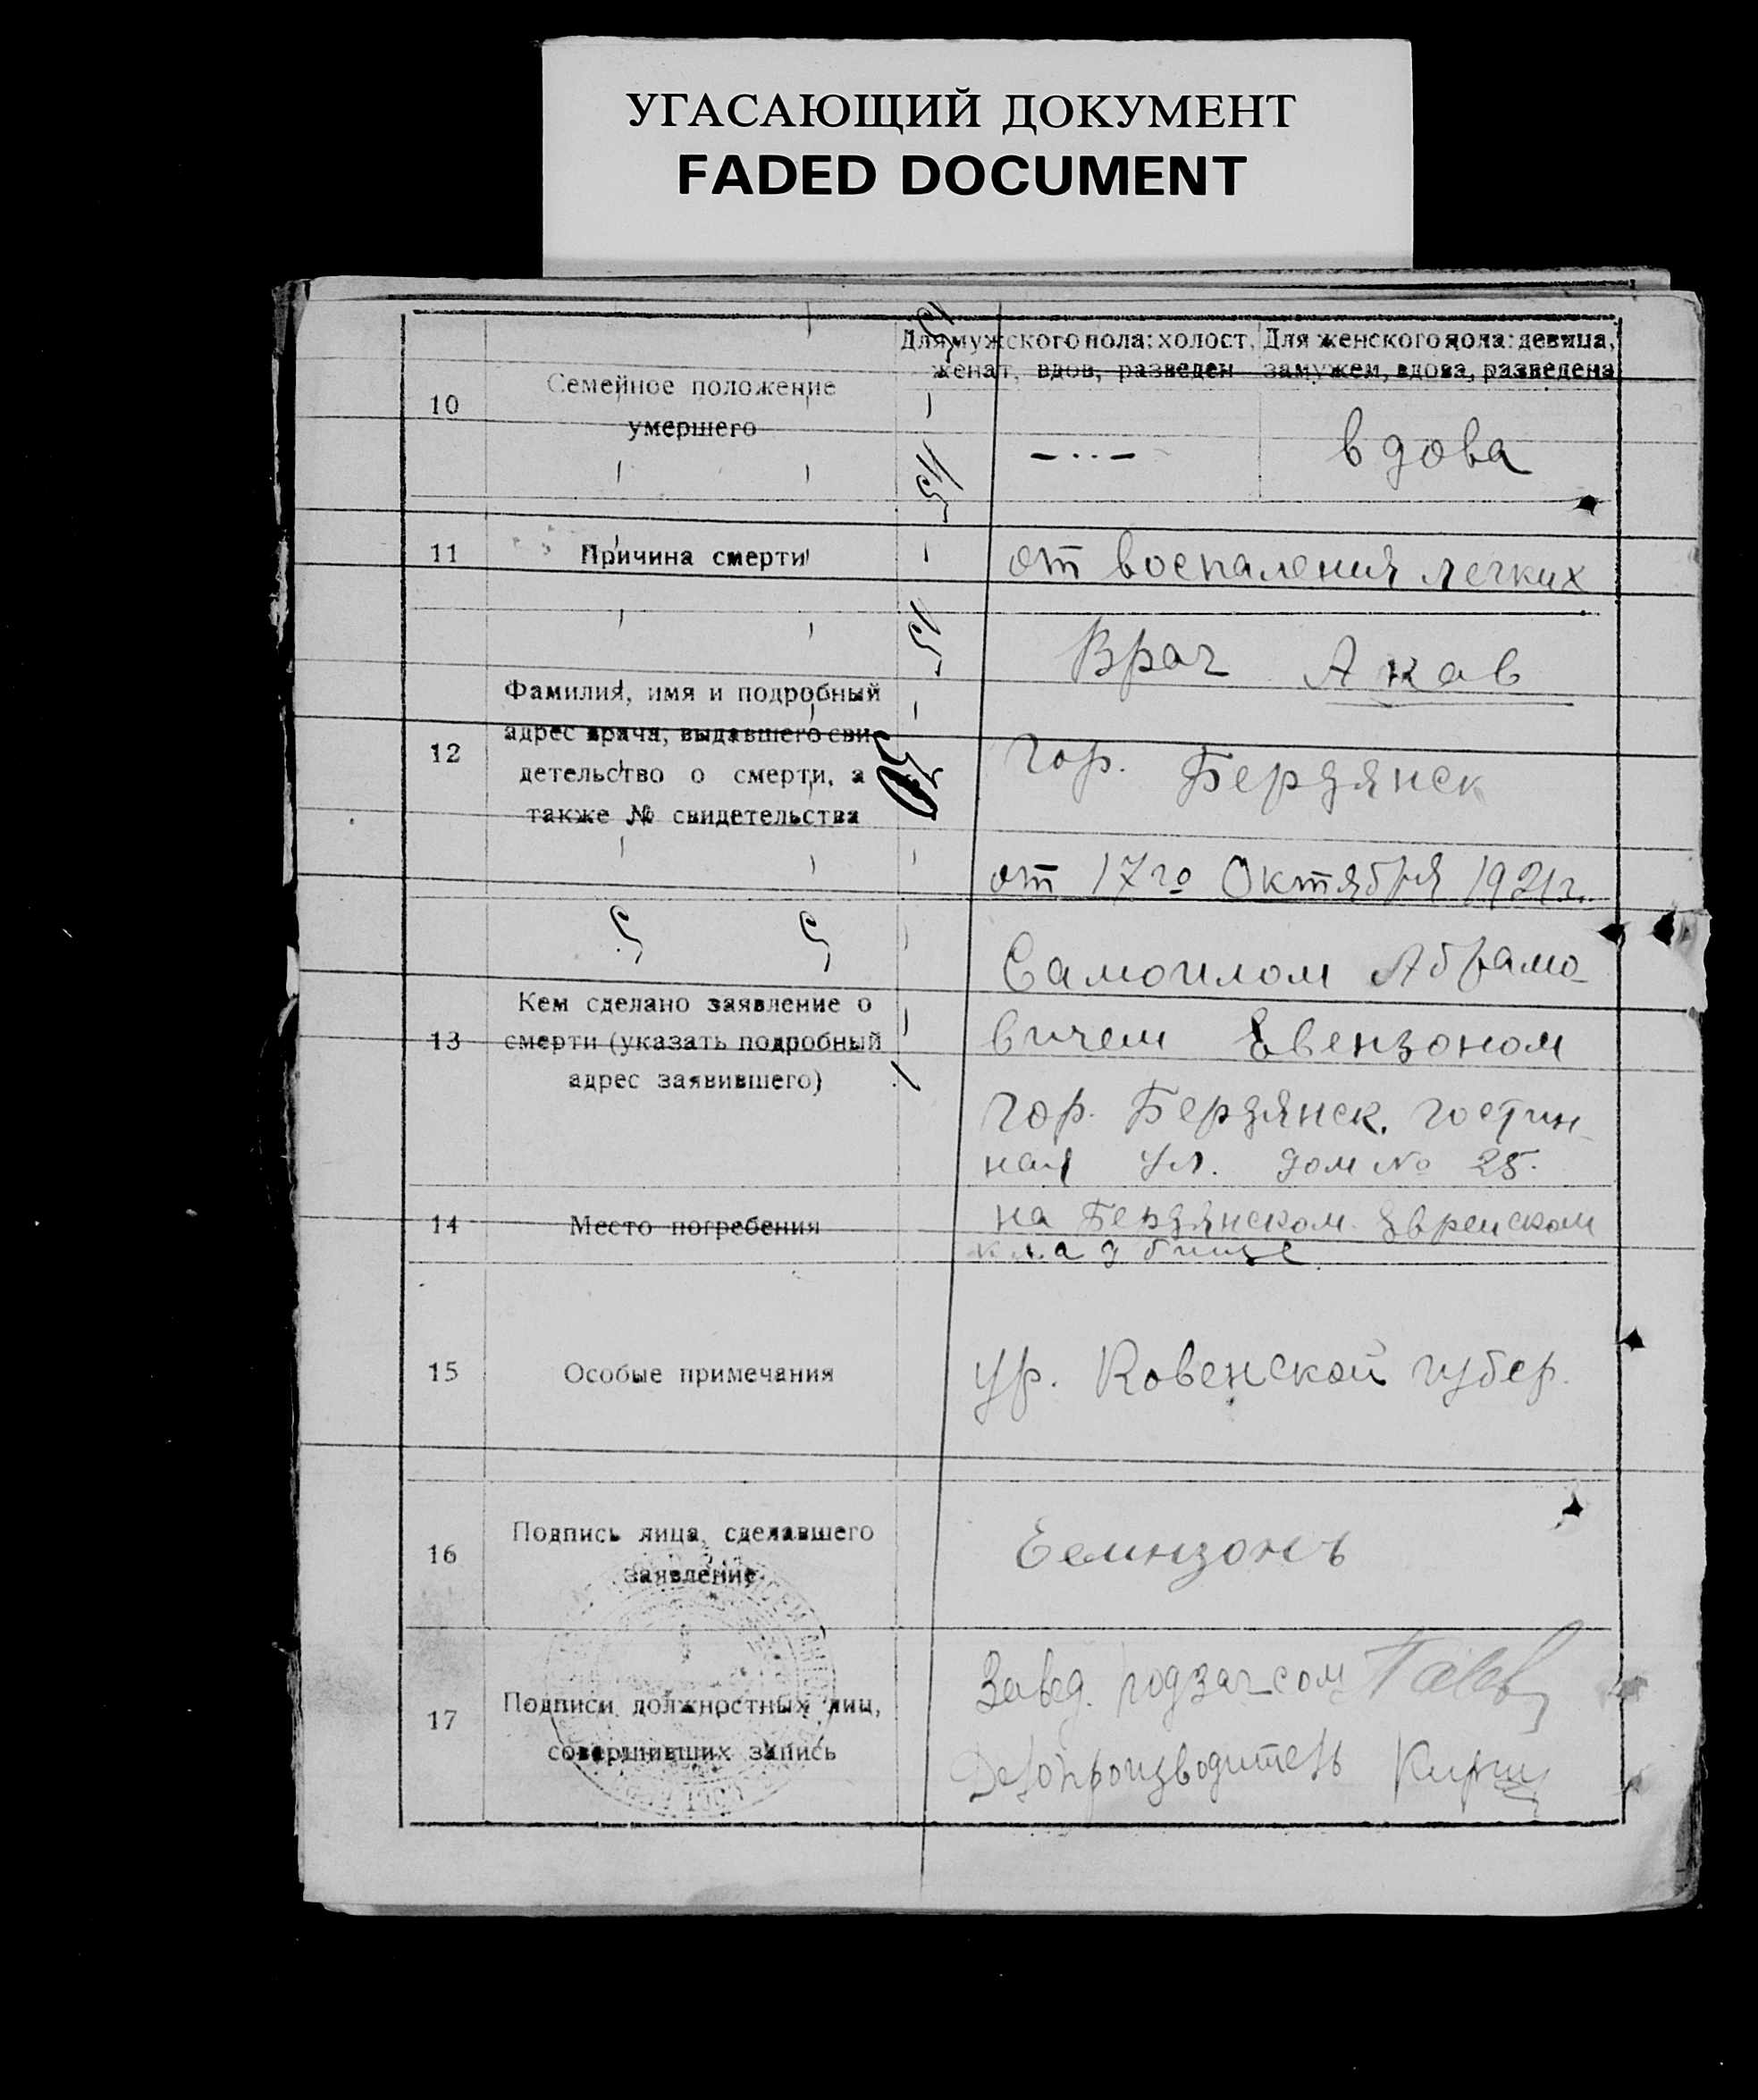 УГАСАЮЩИЙ ДОКУМЕНТ
FADED DOCUMENT
Для мужского пола: холост, женат, вдов, разведен
Для женского пола: девица, замужем, вдова, разведена
10
Семейное положение
умершего
— · · —
вдова
11
Причина смерти
от воспаления легких
12
Фамилия, имя и подробный
адрес врача, выдавшего сви-
детельство о смерти, а
также № свидетельства
Врач Акав
гор. Бердянск
от 17го Октября 1921 г.
13
Кем сделано заявление о
смерти (указать подробный
адрес заявившего)
Самоилом Абрамо-
вичем Евензоном
гор. Бердянск. гостин-
ная ул. дом № 25.
14
Место погребения
на Бердянском Еврейском
кладбище
15
Особые примечания
ур. Ковенской губер.
16
Подпись лица, сделавшего
заявление
17
Подписи должностных лиц,
совершивших запись
Завед. подзагсом
Делопроизводитель
15
15
30